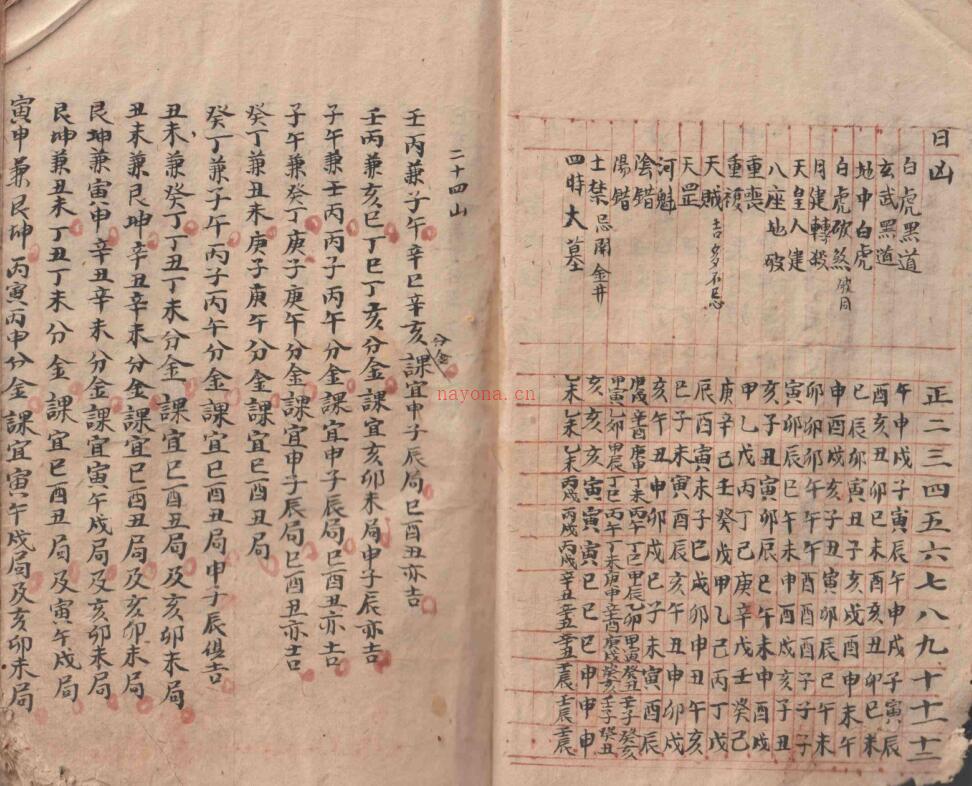 日凶 正二三四五六七八九十十一十二
白虎黑道 午申戌子寅辰午申戌子寅辰
玄武黑道 酉亥丑卯巳未酉亥丑卯巳未
地中白虎 巳辰卯寅丑子亥戌酉申未午
白虎砍煞 破日 申酉戌亥子丑寅卯辰巳午未
月建轉殺 卯卯卯午午午酉酉酉子子子
天皇人建 寅卯辰巳午未申酉戌亥子丑
八座地破 亥子丑寅卯辰巳午未申酉戌
重喪 甲乙戊丙丁己庚辛戊壬癸己
重複 庚辛己壬癸戊甲乙己丙丁戊
天賊 吉多不忌 辰酉寅未子巳戌卯申丑午亥
天罡 巳子未寅酉辰亥午丑申卯戌
河魁 亥午丑申卯戌巳子未寅酉辰
陰錯 庚戌辛酉庚申丁未丙午丁巳甲辰乙卯甲寅癸丑壬子癸亥
陽錯 甲寅乙卯甲辰丁巳丙午丁未庚申辛酉庚戌癸亥壬子癸丑
土禁 忌開金井 亥亥亥寅寅寅巳巳巳申申申
四時大墓 乙未乙未乙未丙戌丙戌丙戌辛丑辛丑辛丑壬辰壬辰壬辰
二十四山
壬丙兼子午辛巳辛亥分金課宜申子辰局巳酉丑亦吉
壬丙兼亥巳丁巳丁亥分金課宜亥卯未局申子辰亦吉
子午兼壬丙丙子丙午分金課宜申子辰局巳酉丑亦吉
子午兼癸丁庚子庚午分金課宜申子辰局巳酉丑亦吉
癸丁兼丑未庚子庚午分金課宜巳酉丑局
癸丁兼子午丙子丙午分金課宜巳酉丑局申子辰俱吉
丑未兼癸丁丁丑丁未分金課宜巳酉丑局及亥卯未局
丑未兼艮坤辛丑辛未分金課宜巳酉丑局及亥卯未局
艮坤兼寅申辛丑辛未分金課宜寅午戌局及亥卯未局
艮坤兼丑未丁丑丁未分金課宜巳酉丑局及寅午戌局
寅申兼艮坤丙寅丙申分金課宜寅午戌局及亥卯未局
nayona.cn